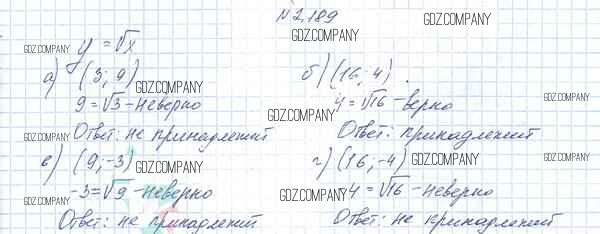 №2.189
GDZ.COMPANY
GDZ.COMPANY
y = √x
GDZ.COMPANY
а) (3; 9)
GDZ.COMPANY
б) (16; 4).
9 = √3 - неверно
GDZ.COMPANY
4 = √16 - верно
GDZ.COMPANY
GDZ.COMPANY
Ответ: не принадлежит
Ответ: принадлежит
GDZ.COMPANY
в) (9; -3)
GDZ.COMPANY
г) (16; -4)
GDZ.COMPANY
GDZ.COMPANY
-3 = √9 - неверно
GDZ.COMPANY
-4 = √16 - неверно
GDZ.COMPANY
Ответ: не принадлежит
Ответ: не принадлежит